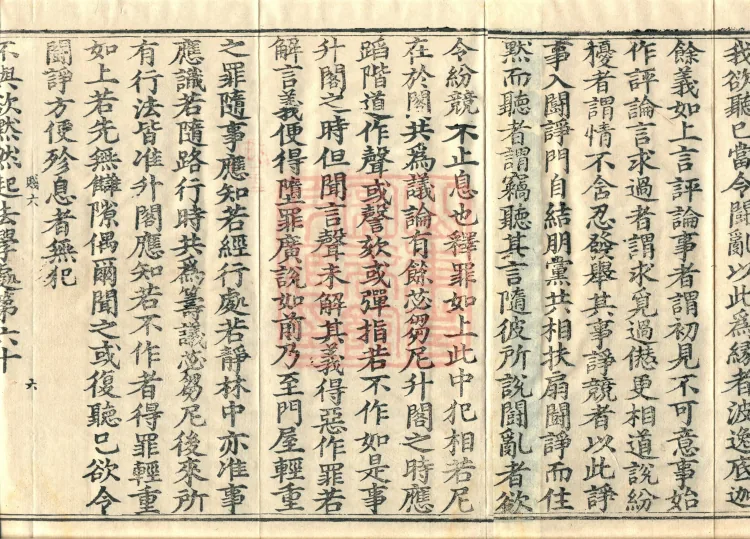 我欲聽已當令鬪亂以此為緣者波逸底迦
餘義如上言評論事者謂初見不可意事始
作評論言求過者謂求覓過愆更相道說紛
擾者謂情不舍忍發舉其事諍競者以此諍
事入鬪諍門自結朋黨共相扶扇鬪諍而住
默而聽者謂竊聽其言隨彼所說鬪亂者欲
令紛競不止息也釋罪如上此中犯相若尼
在於閣共為議論有餘苾芻尼升閣之時應
蹈階道作聲或謦欬或彈指若不作如是事
升閣之時但聞言聲未解其義得惡作罪若
解言義便得墮罪廣說如前乃至門屋輕重
之罪隨事應知若經行處若靜林中亦准事
應識若隨路行時共為籌議苾芻尼後來所
有行法皆准升閣應知若不作者得罪輕重
如上若先無讎隙偶爾聞之或復聽已欲令
鬪諍方便殄息者無犯
賤六 六
不與欲默然起去學處第六十